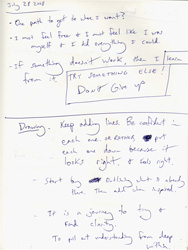 July 28 2008
• One path to get to where I want?
• I must feel free & I must feel like I was
myself & I did everything I could.
- If something doesn't work then I learn
from it.
TRY SOMETHING ELSE!
DON'T GIVE UP
Drawing - Keep adding lines. Be confident in
each one. or put
each one down because it
looks right & feels right.
- Start by outlining what is already
there. Then add when inspired.
- It is a journey to try &
find clarity.
To pull out understanding from deep
within